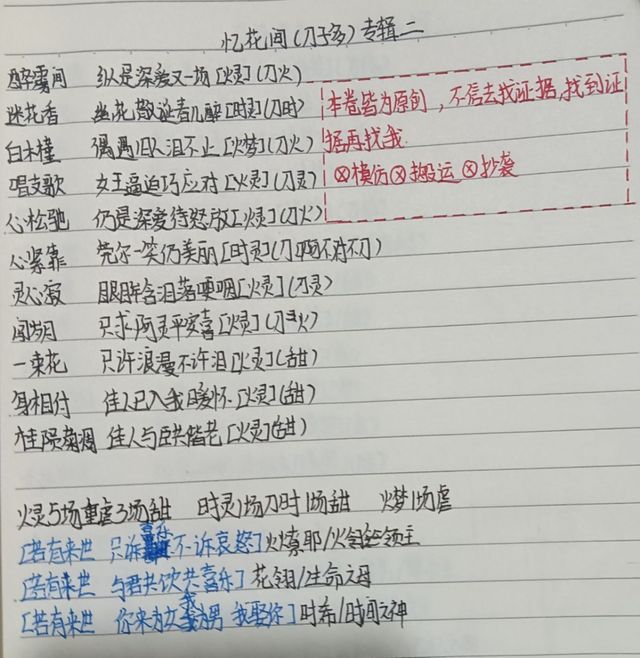 忆花间(刀子多)专辑二
醉霭间 纵是深爱又一场[火灵](刀火)
迷花香 坐花散逝者几醉[时灵](刀时)
白木槿 偶遇旧人泪不止[火梦](刀火)
唱支歌 女王逼迫巧应对[火灵](刀灵)
心松驰 仍是深爱待怒放[火灵](刀火)
心紧靠 莞尔一笑仍美丽[时灵](刀啊不对不刀)
灵心寂 眼眸含泪落哽咽[火灵](刀灵)
闻岁月 只求阿灵平安喜[火灵](刀火)
一束花 只许浪漫不许泪[火灵](甜)
身相付 佳人已入我暖怀[火灵](甜)
桂陨菊凋 佳人与臣共偕老[火灵](甜)
本卷皆为原创,不信去找证据,找到证
据再找我.
⊗模仿⊗搬运⊗抄袭
火灵5场重虐3场甜 时灵1场刀时1场甜 火梦1场虐
[若有来世 只诉喜乐不诉哀怒]火燎耶/火领主
[若有来世 与君共饮共喜乐]花翎/生命之母
[若有来世 你来为女我为男 我娶你]时希/时间之神